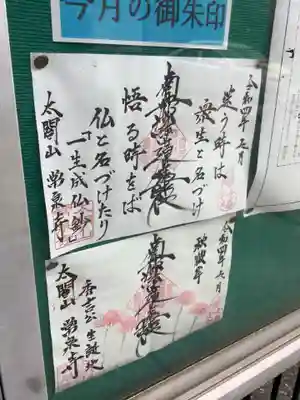 今月の御朱印
令和四年 五月
迷う時は
衆生と名づけ
南無妙法蓮華経
悟る時をば
仏と名づけたり
「一生成仏鈔」
太閤山 常泉寺
令和四年 五月
南無妙法蓮華経
秀吉公 生誕地
太閤山 常泉寺